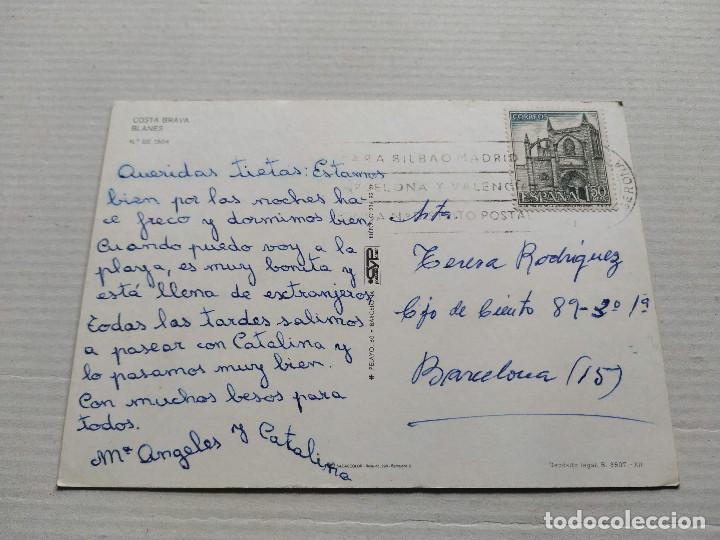 COSTA BRAVA
BLANES
Queridas tietas: Estamos
bien por las noches ha-
ce freco y dormimos bien
Cuando puedo voy a la
playa, es muy bonita y
está llena de extranjeros
Todas las tardes salimos
a pasear con Catalina y
lo pasamos muy bien.
Con muchos besos para
todos.
Mª Angeles y Catalina
PELAYO, 30 - BARCELONA
CORREOS
ESPAÑA 1,20
BILBAO MADRID
Y VALENCIA
POSTAL
Srta.
Teresa Rodríguez
Cjo de Ciento 89-3º 1ª
Barcelona (15)
Depósito legal B. 3507 - XII
todocoleccion
todocoleccion.net